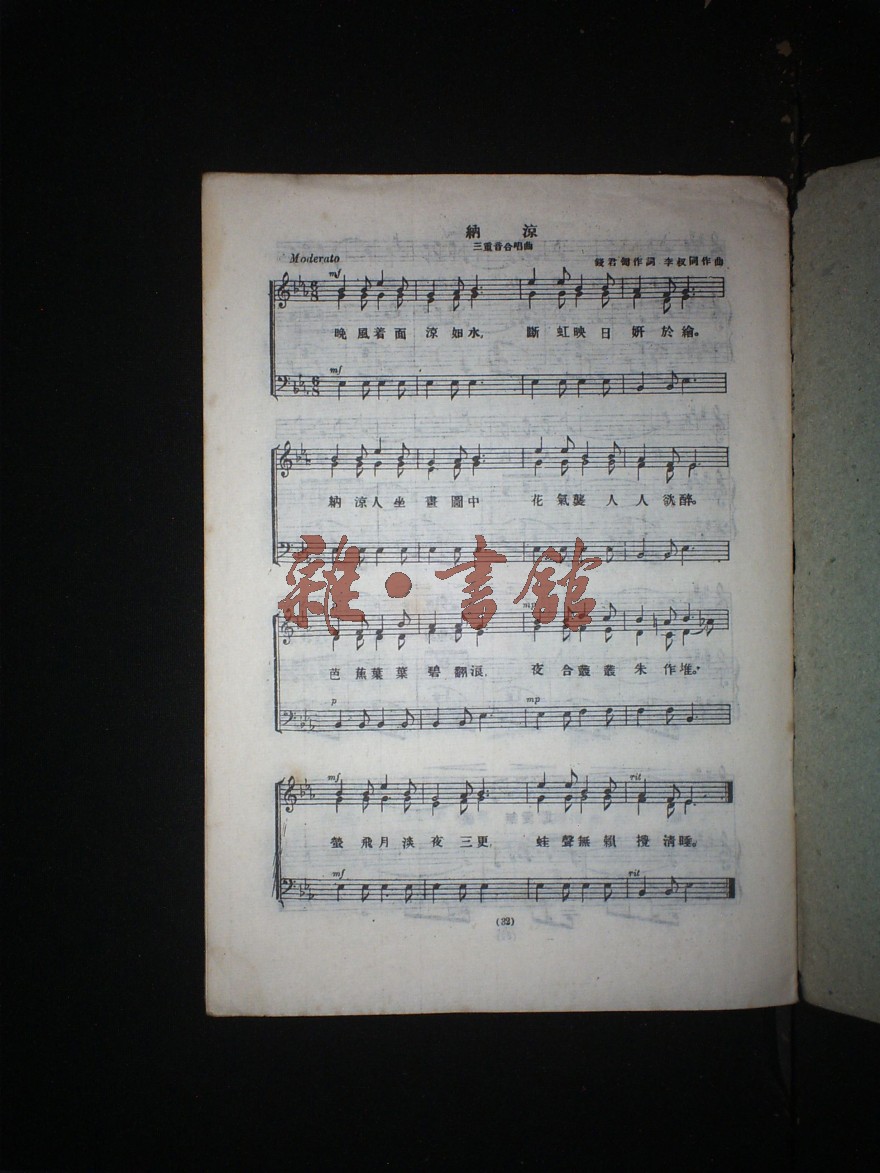 納 涼
三重音合唱曲
Moderato
錢君匋作詞 李叔同作曲
mf
晚風着面涼如水, 斷虹映日妍於繪。
mf
納涼人坐畫圖中 花氣襲人人欲醉。
雜·書館
mp
芭蕉葉葉碧翻浪, 夜合叢叢朱作堆。
p mp
mf rit
螢飛月淡夜三更, 蛙聲無賴攪清睡。
mf rit
(32)